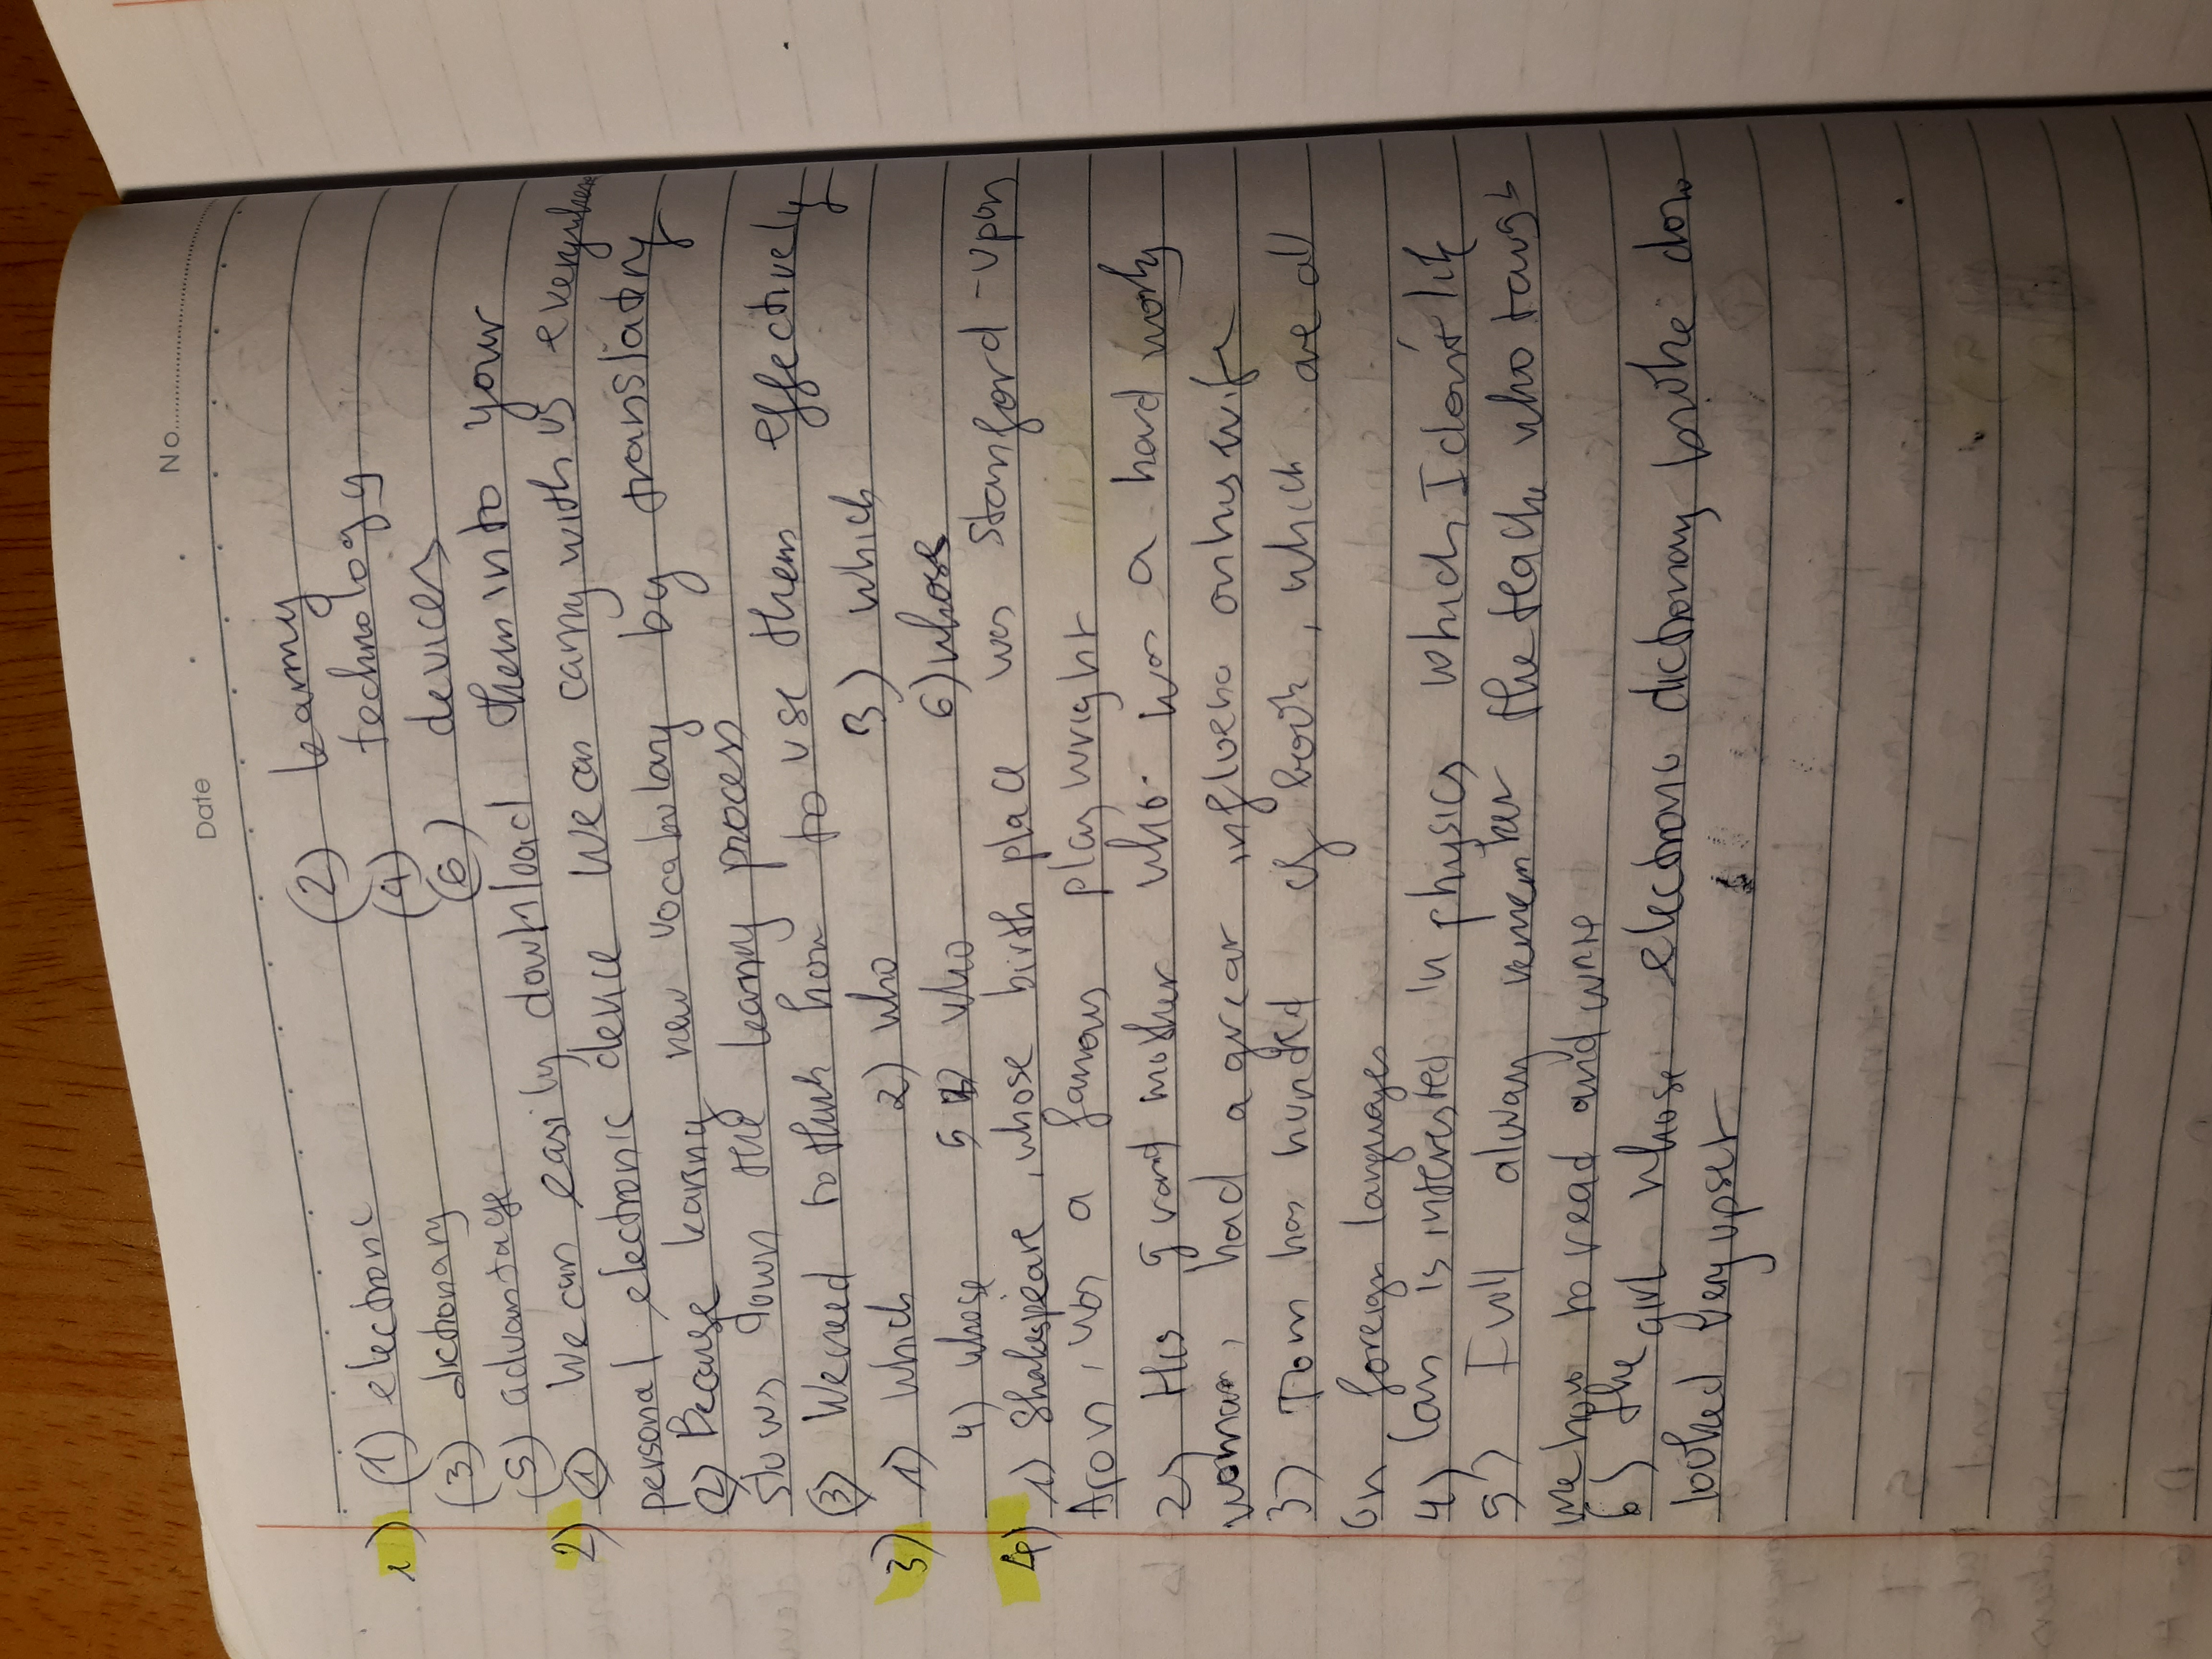 Date No.
1) (1) electronic (2) learning
(3) dictionary (4) technology
(5) advantage (6) devices
2) (1) We can easily downloard them into your
personal electronic device we can carry with us everywhere
(2) Because learning new vocabulary by translating
slows down the learning process
(3) We need to think how to use them effectively
3) 1) which 2) who 3) which
4) whose 5) who 6) whose
4) 1) Shakespeare, whose birth place was Stanford-upon
Avon, was a famous play wright
2) His grand mother who was a hard working
woman, had a great influence on his wife
3) Tom has hundred of book, which are all
in foreign languages
4) Can is interested in physics which I don't like
5) I will always remember the teache who taugh
me how to read and write
6) the girl whose electronic dictionary broke down
looked very upset